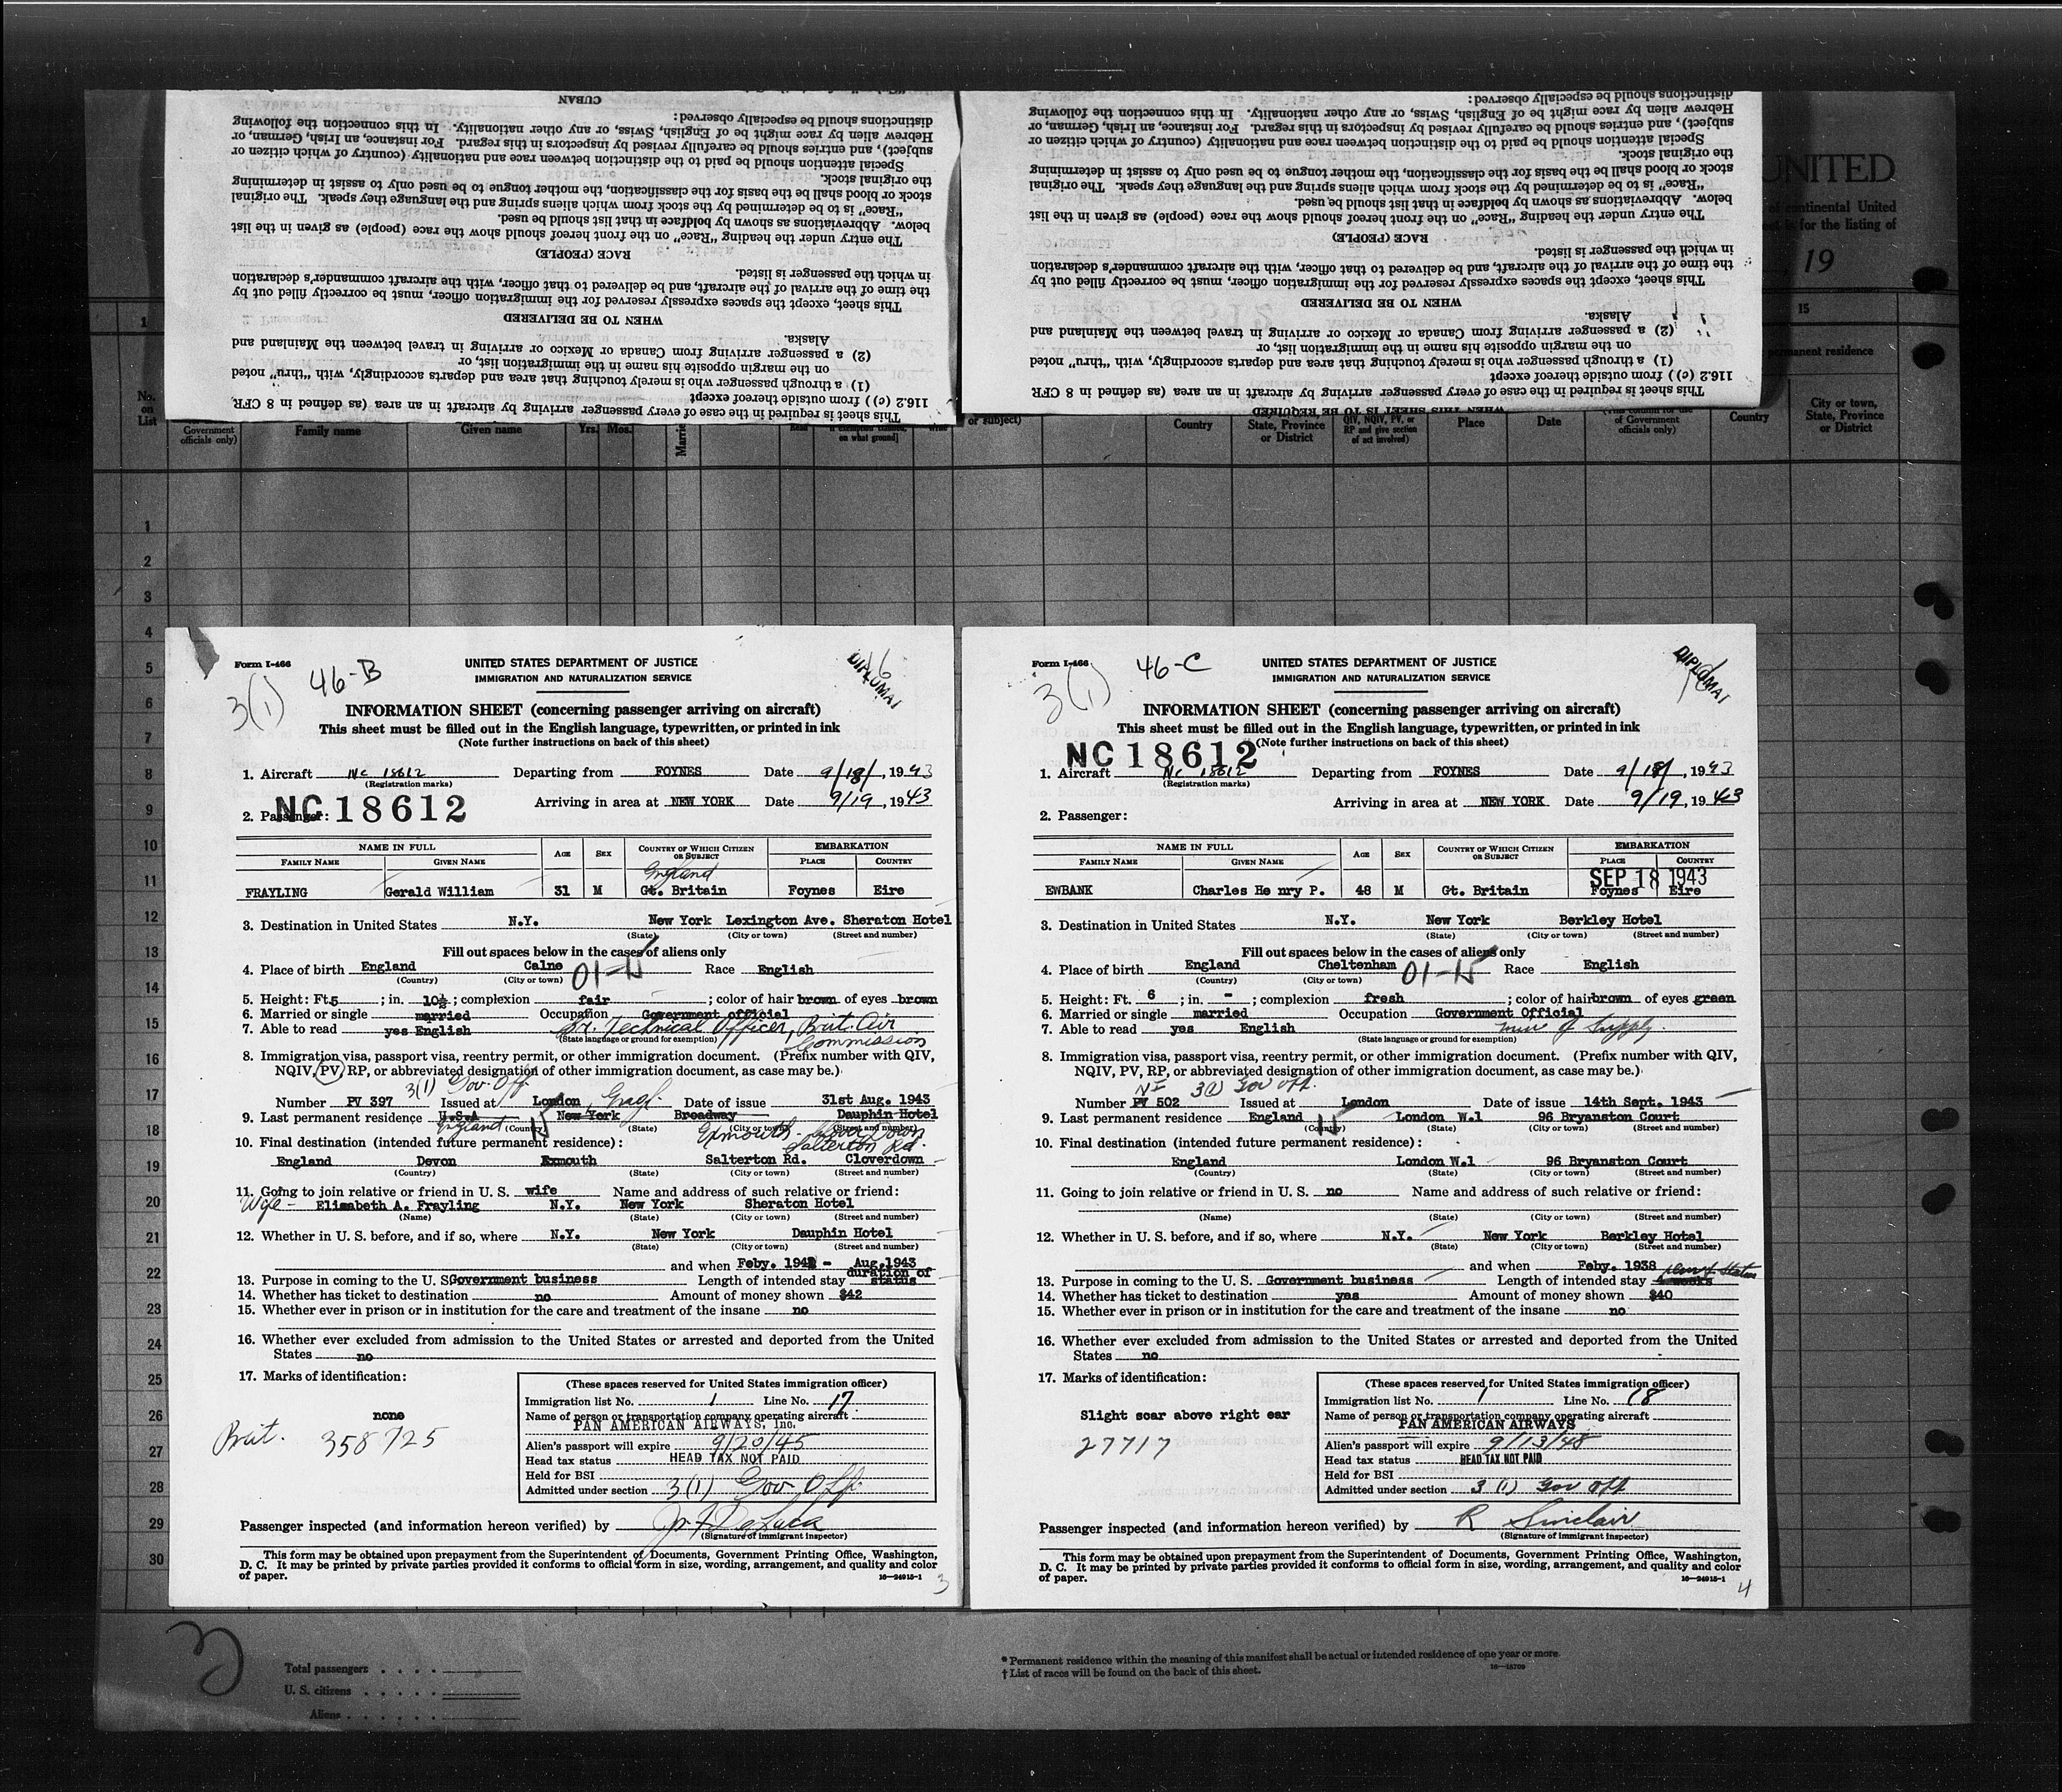 CUBAN
distinctions should be especially observed:
Hebrew alien by race might be of English, Swiss, or any other nationality. In this connection the following
subject), and entries should be carefully revised by inspectors in this regard. For instance, an Irish, German, or
Special attention should be paid to the distinction between race and nationality (country of which citizen or
the original stock.
stock or blood shall be the basis for the classification, the mother tongue to be used only to assist in determining
"Race" is to be determined by the stock from which aliens spring and the language they speak. The original
below. Abbreviations as shown by boldface in that list should be used.
The entry under the heading "Race" on the front hereof should show the race (people) as given in the list
RACE (PEOPLE)
in which the passenger is listed.
the time of the arrival of the aircraft, and be delivered to that officer, with the aircraft commander's declaration
This sheet, except the spaces expressly reserved for the immigration officer, must be correctly filled out by
WHEN TO BE DELIVERED
Alaska.
(2) a passenger arriving from Canada or Mexico or arriving in travel between the Mainland and
on the margin opposite his name in the immigration list, or
(1) a through passenger who is merely touching that area and departs accordingly, with "thru" noted
116.2 (c) ) from outside thereof except
This sheet is required in the case of every passenger arriving by aircraft in an area (as defined in 8 CFR
distinctions should be especially observed:
Hebrew alien by race might be of English, Swiss, or any other nationality. In this connection the following
subject), and entries should be carefully revised by inspectors in this regard. For instance, an Irish, German, or
Special attention should be paid to the distinction between race and nationality (country of which citizen or
the original stock.
stock or blood shall be the basis for the classification, the mother tongue to be used only to assist in determining
"Race" is to be determined by the stock from which aliens spring and the language they speak. The original
below. Abbreviations as shown by boldface in that list should be used.
The entry under the heading "Race" on the front hereof should show the race (people) as given in the list
RACE (PEOPLE)
in which the passenger is listed.
the time of the arrival of the aircraft, and be delivered to that officer, with the aircraft commander's declaration
This sheet, except the spaces expressly reserved for the immigration officer, must be correctly filled out by
WHEN TO BE DELIVERED
Alaska.
(2) a passenger arriving from Canada or Mexico or arriving in travel between the Mainland and
on the margin opposite his name in the immigration list, or
(1) a through passenger who is merely touching that area and departs accordingly, with "thru" noted
116.2 (c) ) from outside thereof except
This sheet is required in the case of every passenger arriving by aircraft in an area (as defined in 8 CFR
WHEN THIS SHEET IS TO BE REQUIRED
UNITED
of continental United
for the listing of
19
15
permanent residence
No. on List
Government officials only)
Family name
Given name
Yrs. Mos.
Read
on what ground]
or subject)
Country
City or town, State, Province or District
QIV, NQIV, PV, or RP and give section of act involved)
Place
Date
of Government officials only)
Country
City or town, State, Province or District
1
2
3
4
5
6
7
8
9
10
11
12
13
14
15
16
17
18
19
20
21
22
23
24
25
26
27
28
29
30
Form I-466
46-B
3(1)
DIPLOMAT
16
UNITED STATES DEPARTMENT OF JUSTICE
IMMIGRATION AND NATURALIZATION SERVICE
INFORMATION SHEET (concerning passenger arriving on aircraft)
This sheet must be filled out in the English language, typewritten, or printed in ink
(Note further instructions on back of this sheet)
1. Aircraft NC 18612 Departing from FOYNES Date 9/18/, 1943
(Registration marks)
NC 18612
Arriving in area at NEW YORK Date 9/19, 1943
2. Passenger:
NAME IN FULL AGE SEX COUNTRY OF WHICH CITIZEN OR SUBJECT EMBARKATION
FAMILY NAME GIVEN NAME PLACE COUNTRY
England
FRAYLING Gerald William 31 M Gt. Britain Foynes Eire
3. Destination in United States N.Y. New York Lexington Ave. Sheraton Hotel
(State) (City or town) (Street and number)
Fill out spaces below in the cases of aliens only
4. Place of birth England Calne Race English
(Country) (City or town)
5. Height: Ft. 5; in. 10½; complexion fair; color of hair brown of eyes brown
6. Married or single married Occupation Government official
7. Able to read yes English Sr. Technical Officer, Brit. Air Commission
(State language or ground for exemption)
8. Immigration visa, passport visa, reentry permit, or other immigration document. (Prefix number with QIV,
NQIV, PV, RP, or abbreviated designation of other immigration document, as case may be.)
3(1) Gov. Off.
Number PV 397 Issued at London Engl. Date of issue 31st Aug. 1943
9. Last permanent residence U.S.A New York Broadway Dauphin Hotel
England Exmouth Clover Down Salterton Rd.
(Country) (State) (City or town) (Street and number)
10. Final destination (intended future permanent residence):
England Devon Exmouth Salterton Rd. Cloverdown
(Country) (State) (City or town) (Street and number)
11. Going to join relative or friend in U. S. wife Name and address of such relative or friend:
Wife - Elisabeth A. Frayling N.Y. New York Sheraton Hotel
(Name) (State) (City or town) (Street and number)
12. Whether in U. S. before, and if so, where N.Y. New York Dauphin Hotel
(State) (City or town) (Street and number)
and when Feby. 1942 - Aug. 1943
13. Purpose in coming to the U. S. Government business Length of intended stay duration of status
14. Whether has ticket to destination no Amount of money shown $42
15. Whether ever in prison or in institution for the care and treatment of the insane no
16. Whether ever excluded from admission to the United States or arrested and deported from the United
States no
17. Marks of identification:
none
Brit. 358725
(These spaces reserved for United States immigration officer)
Immigration list No. 1 Line No. 17
Name of person or transportation company operating aircraft
PAN AMERICAN AIRWAYS, Inc.
Alien's passport will expire 9/20/45
Head tax status HEAD TAX NOT PAID
Held for BSI
Admitted under section 3(1) Gov Off.
Passenger inspected (and information hereon verified) by
(Signature of immigrant inspector)
This form may be obtained upon prepayment from the Superintendent of Documents, Government Printing Office, Washington,
D. C. It may be printed by private parties provided it conforms to official form in size, wording, arrangement, and quality and color
of paper.
16—24915-1
3
Form I-466
46-C
3(1)
DIPLOMAT
UNITED STATES DEPARTMENT OF JUSTICE
IMMIGRATION AND NATURALIZATION SERVICE
INFORMATION SHEET (concerning passenger arriving on aircraft)
This sheet must be filled out in the English language, typewritten, or printed in ink
(Note further instructions on back of this sheet)
NC 18612
1. Aircraft NC 18612 Departing from FOYNES Date 9/18/, 1943
(Registration marks)
Arriving in area at NEW YORK Date 9/19, 1943
2. Passenger:
NAME IN FULL AGE SEX COUNTRY OF WHICH CITIZEN OR SUBJECT EMBARKATION
FAMILY NAME GIVEN NAME PLACE COUNTRY
SEP 18 1943
EWBANK Charles He nry P. 48 M Gt. Britain Foynes Eire
3. Destination in United States N.Y. New York Berkley Hotel
(State) (City or town) (Street and number)
Fill out spaces below in the cases of aliens only
4. Place of birth England Cheltenham Race English
(Country) (City or town)
5. Height: Ft. 6; in. -; complexion fresh; color of hair brown of eyes green
6. Married or single married Occupation Government Official
7. Able to read yes English Min of Supply.
(State language or ground for exemption)
8. Immigration visa, passport visa, reentry permit, or other immigration document. (Prefix number with QIV,
NQIV, PV, RP, or abbreviated designation of other immigration document, as case may be.)
3(1) Gov off.
Number PV 502 Issued at London Date of issue 14th Sept. 1943
9. Last permanent residence England London W.1 96 Bryanston Court
(Country) (State) (City or town) (Street and number)
10. Final destination (intended future permanent residence):
England London W.1 96 Bryanston Court
(Country) (State) (City or town) (Street and number)
11. Going to join relative or friend in U. S. no Name and address of such relative or friend:
(Name) (State) (City or town) (Street and number)
12. Whether in U. S. before, and if so, where N.Y. New York Berkley Hotel
(State) (City or town) (Street and number)
and when Feby. 1938
13. Purpose in coming to the U. S. Government business Length of intended stay weeks
14. Whether has ticket to destination yes Amount of money shown $40
15. Whether ever in prison or in institution for the care and treatment of the insane no
16. Whether ever excluded from admission to the United States or arrested and deported from the United
States no
17. Marks of identification:
Slight scar above right ear
27717
(These spaces reserved for United States immigration officer)
Immigration list No. 1 Line No. 18
Name of person or transportation company operating aircraft
PAN AMERICAN AIRWAYS
Alien's passport will expire 9/13/48
Head tax status HEAD TAX NOT PAID
Held for BSI
Admitted under section 3 (1) Gov Off
Passenger inspected (and information hereon verified) by R Sinclair
(Signature of immigrant inspector)
This form may be obtained upon prepayment from the Superintendent of Documents, Government Printing Office, Washington,
D. C. It may be printed by private parties provided it conforms to official form in size, wording, arrangement, and quality and color
of paper.
16—24915-1
4
Total passengers
U. S. citizens
Aliens
* Permanent residence within the meaning of this manifest shall be actual or intended residence of one year or more.
† List of races will be found on the back of this sheet.